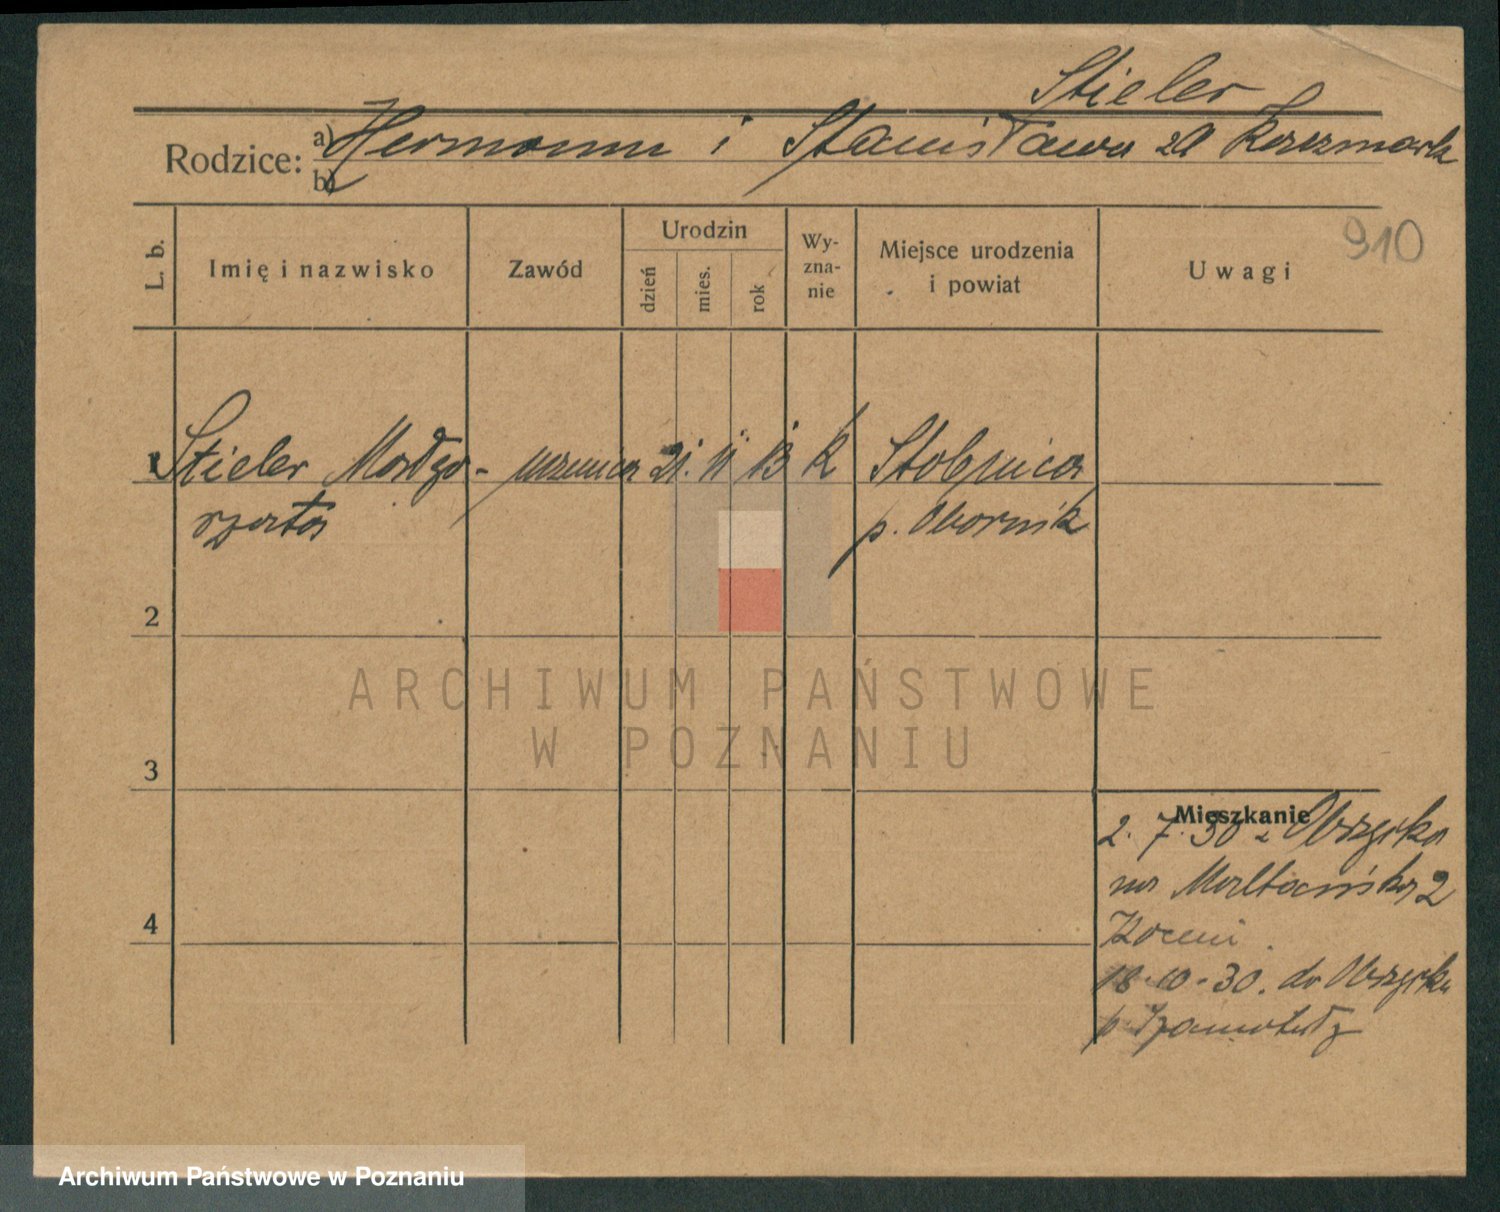 Stieler
Rodzice: a) Hermann i Stanisława zd Korczmark
b)
L. b. Imię i nazwisko Zawód Urodzin dzień mies. rok Wy-zna-nie Miejsce urodzenia i powiat Uwagi
910
1 Stieler Małgo- uczenica 21. 11 13 K Stobnica
rzata p. Obornik
2
ARCHIWUM PAŃSTWOWE
W POZNANIU
3
Mieszkanie
2. 7. 30 z Obrzycka
na Maltańską 2
4
18-10-30. do Obrzycka
p. Szamotuły
Archiwum Państwowe w Poznaniu